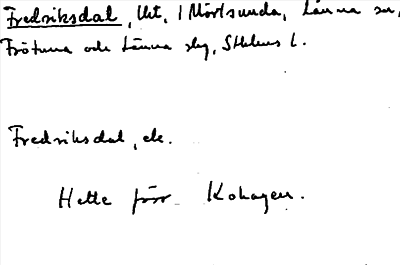 Fredriksdal, lht, i Mörtsunda, Länna sn,
Frötuna och Länna slg, Sthlms l.
Fredriksdal, ele.
Hette förr Kohagen.